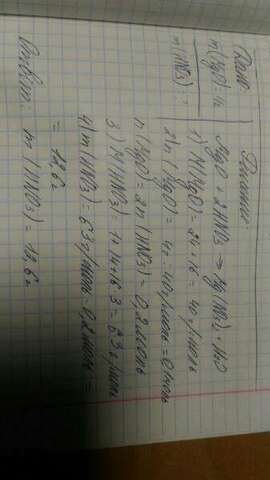 Дано:
m(MgO)=4г
m(HNO3)-?
Решение:
MgO + 2HNO3 → Mg(NO3)2 + H2O
1) M(MgO) = 24 + 16 = 40 г/моль
2) n(MgO) = 4г : 40 г/моль = 0,1 моль
n(MgO) = 2n(HNO3) = 0,2 моль
3) M(HNO3) = 1+14+16·3 = 63 г/моль
4) m(HNO3) = 63 г/моль · 0,2 моль =
= 12,6г
Ответ: m(HNO3) = 12,6г